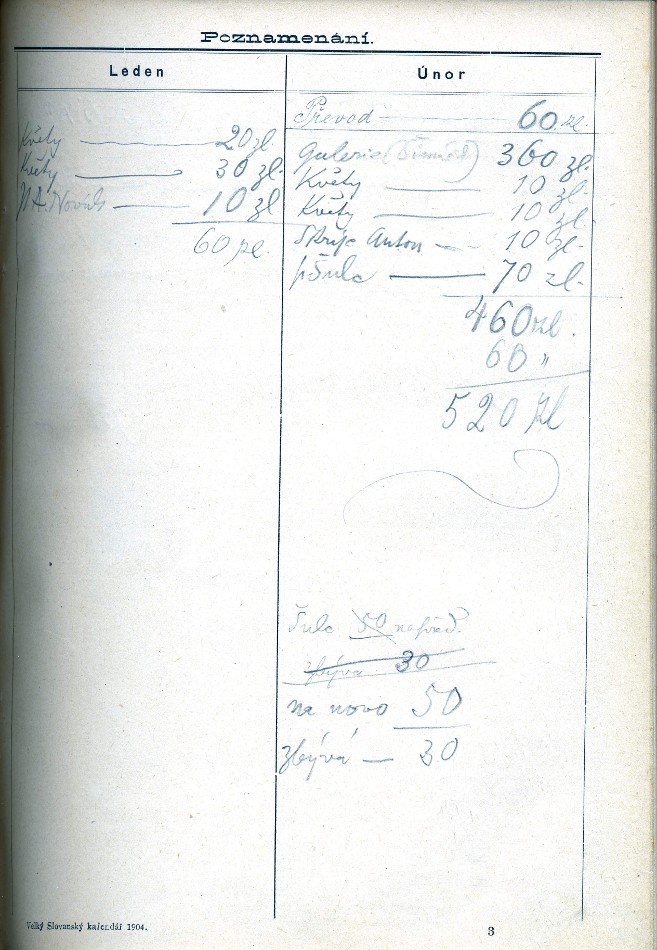 Poznamenání.
Leden
Květy 20 zl.
Květy 30 zl.
Novák 10 zl
60 zl.
Únor
Převod 60 zl.
Galerie 360 zl.
Květy 10 zl.
Květy 10 zl.
Anton 10 zl.
Šulc 70 zl.
460 zl.
60 "
520 zl
Šulc 50 napřed.
zbývá 30
na novo 50
zbývá 30
Velký Slovanský kalendář 1904.
3